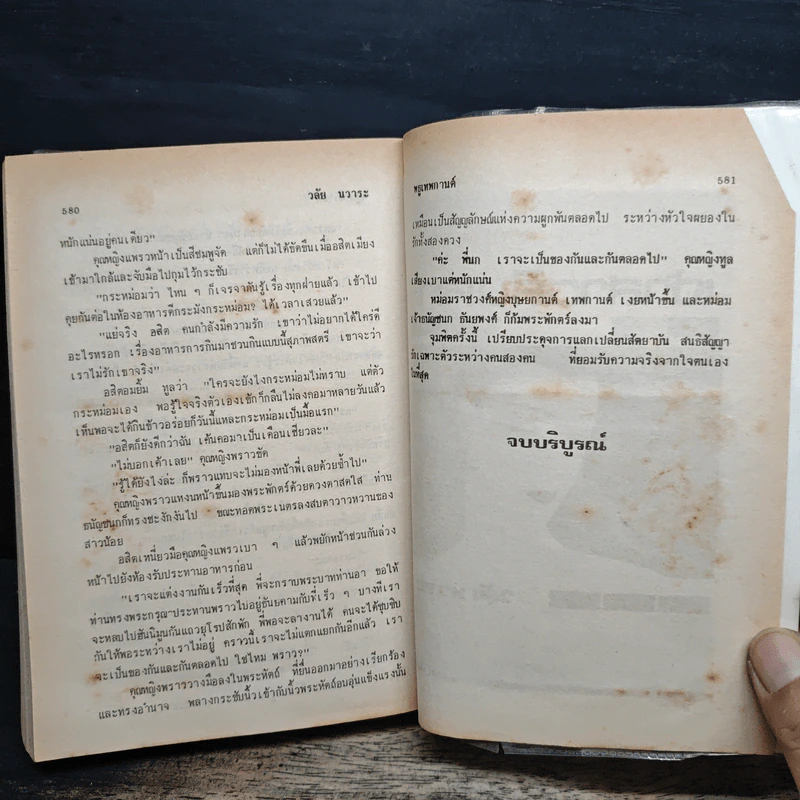 580
วลัย นวาระ
หนักแน่นอยู่คนเดียว"
คุณหญิงแพรวหน้าเป็นสีชมพูจัด แต่ก็ไม่ได้ขัดขืนเมื่ออสิตเมียง
เข้ามาใกล้และจับมือไปกุมไว้กระชับ
"กระหม่อมว่า ไหน ๆ ก็เจรจาต้นรู้เรื่องทุกฝ่ายแล้ว เข้าไป
คุยกันต่อในห้องอาหารดีกระมังกระหม่อม? ได้เวลาเสวยแล้ว"
"แย่จริง อสิต คนกำลังมีความรัก เขาว่าไม่อยากได้ใครดี
อะไรหรอก เรื่องอาหารการกินมาชวนกินแบบนี้สุภาพสตรี เขาจะว่า
เราไม่รักเขาจริง"
อสิตอมยิ้ม ทูลว่า "ใครจะยังไงกระหม่อมไม่ทราบ แต่ตัว
กระหม่อมเอง พอรู้ใจจริงตัวเองเข้กก็กลืนไม่ลงคอมาหลายวันแล้ว
เห็นพอจะได้กินข้าวอร่อยก็วันนี้แหละกระหม่อมเป็นมื้อแรก"
"อสิตก็ยังดีกว่าฉัน เค้นคอมาเป็นเดือนเชียวละ"
"ไม่บอกเค้าเลย" คุณหญิงพราวขัด
"รู้ได้ยังไงล่ะ ก็พราวแทบจะไม่มองหน้าพี่เลยด้วยซ้ำไป"
คุณหญิงพราวแหงนหน้าขึ้นมองพระพักตร์ด้วยดวงตาสดใส ท่าน
ธนัญชนกก็ทรงชะงักงันไป ขณะทอดพระเนตรลงสบตาวาวหวานของ
สาวน้อย
อสิตเหนี่ยวมือคุณหญิงแพรวเบา ๆ แล้วพยักหน้าชวนกันล่วง
หน้าไปยังห้องรับประทานอาหารก่อน
"เราจะแต่งงานกันเร็วที่สุด พี่จะกราบพระบาทท่านอา ขอให้
ท่านทรงพระกรุณาประทานพราวไปอยู่ธันยคามกับพี่เร็ว ๆ บางทีเรา
จะหลบไปฮันนีมูนกันแถวยุโรปสักพัก พี่พอจะลางานได้ คนจะได้ซุบซิบ
กันให้พอระหว่างเราไม่อยู่ คราวนี้เราจะไม่แตกแยกกันอีกแล้ว เรา
จะเป็นของกันและกันตลอดไป ใช่ไหม พราว?"
คุณหญิงพราววางมือลงในพระหัตถ์ ที่ยื่นออกมาอย่างเรียกร้อง
และทรงอำนาจ พลางกระชับนิ้วเข้ากับนิ้วพระหัตถ์อบอุ่นแข็งแรงนั้น
พธูเทพกานต์
581
เหมือนเป็นสัญญลักษณ์แห่งความผูกพันตลอดไป ระหว่างหัวใจผยองใน
รักทั้งสองดวง
"ค่ะ พี่นก เราจะเป็นของกันและกันตลอดไป" คุณหญิงทูล
เสียงเบาแต่หนักแน่น
หม่อมราชวงศ์หญิงบุษยกานต์ เทพกานต์ เงยหน้าขึ้น และหม่อม
เจ้าธนัญชนก ธันยพงศ์ ก็ก้มพระพักตร์ลงมา
จุมพิตครั้งนี้ เปรียบประดุจการแลกเปลี่ยนสัตยาบัน สนธิสัญญา
รักเฉพาะตัวระหว่างคนสองคน ที่ยอมรับความจริงจากใจตนเอง
ในที่สุด
จบบริบูรณ์